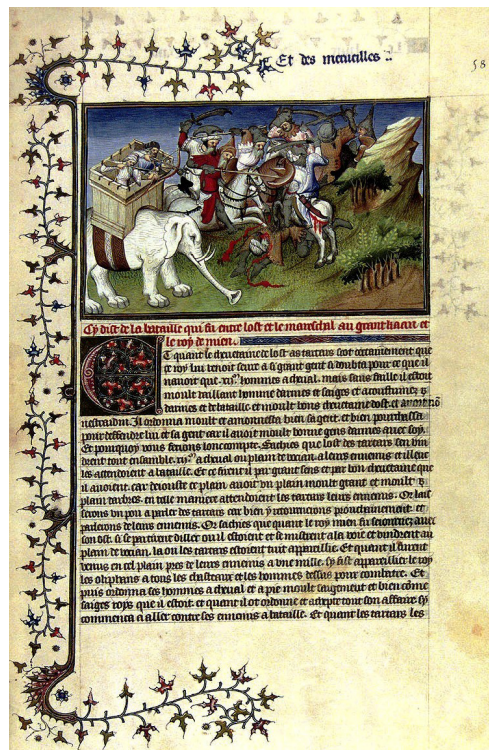 Et des merueilles ..
58
Cy dist de la bataille qui fu entre lost et le mareschal au grant kaan et
le roy de mien.
Et quant le cheuetaine de lost as tartars sot certainement que
ce roy lui venoit seure a si grant gent si doubta pour ce que il
nauoit que .xij.m hommes a cheual. mais sans faille il estoit
moult uaillant homme darmes et saiges et acoustumez
darmes et de bataille et moult bons cheuetaine dost. et auoit nō
nescradin. Il ordonna moult et amonnesta bien sa gent. et bien pourchassa
pour deffendre lui et sa gent car il auoit moult bonne gens darmes auec soy.
Et pourquoy vous feroie lonc compte. Sachies que lost des tartars sen vin
drent tout ensemble .xij.m a cheual ou plain de vocian. a leurs ennemis et illeuc
les attendoient a bataille. Et ce firent il par grant sens et par bon cheuetaine que
il auoient. car de iouste ce plain auoit vn plain moult grant et moult
plain darbres. en telle maniere attendoient les tartars leurs ennemis. Or lais
serons vn pou a parler des tartars car bien y retournerons prochainement. et
parlerons de leurs ennemis. Or sachies que quant le roy mien fu seiournez auec
son ost. si se partirent dillec ou il estoient et se mistrent a la voie et vindrent au
plain de vocian. la ou les tatars estoient tuit appareillie. Et quant il furent
venus en cel plain pres de leurs ennemis a vne mille. sy fist appareillier le roy
les oliphans a tous les chasteaux et les hommes dessus pour combatre. Et
puis ordonna ses hommes a cheual et a pie moult saigement et bien cōme
saiges roys que il estoit. et quant il ot ordonne et acheple tout son affaire sy
commenca a aller contre ses ennemis a bataille. Et quant les tartars les